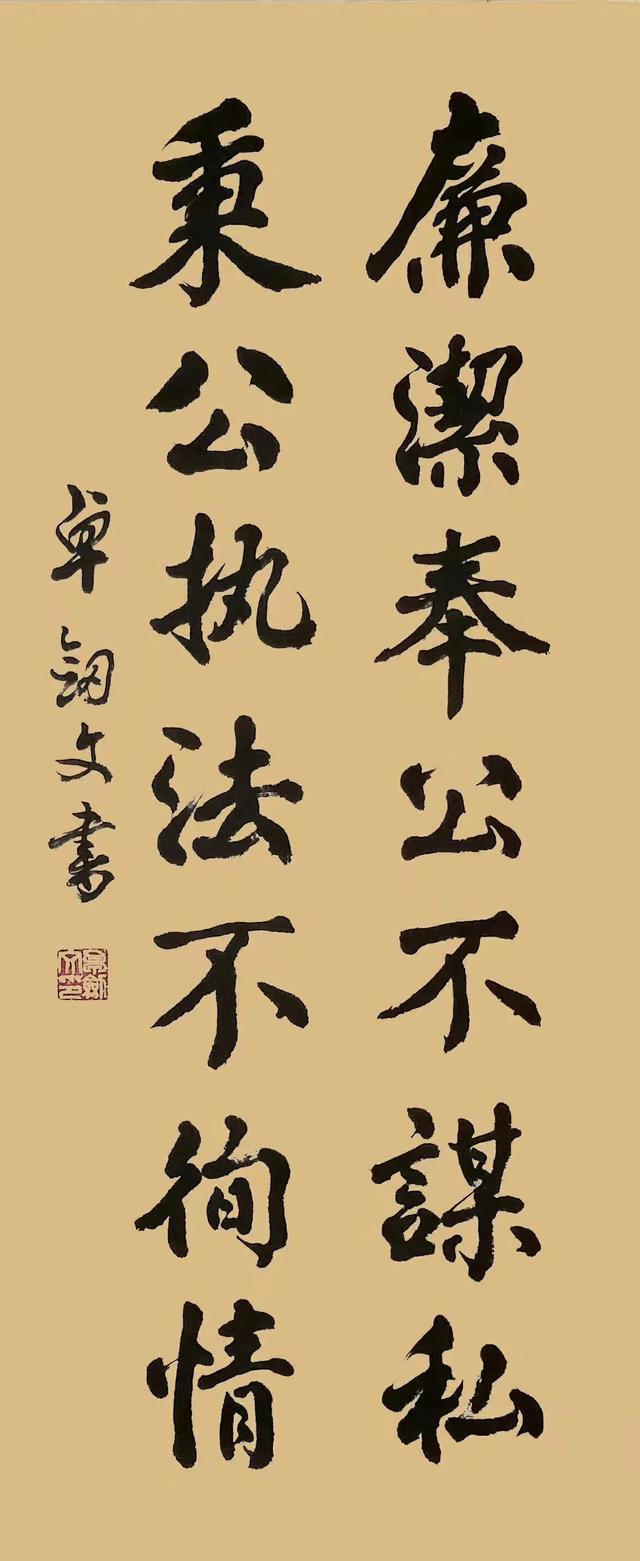 廉潔奉公不謀私
秉公执法不徇情
釼文書